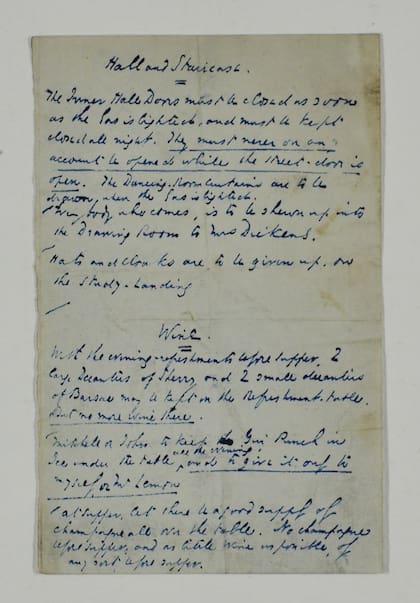 Hall and Staircase.
The Inner Hall Doors must be closed as soon
as the Gas is lighted, and must be kept
closed all night. They must never on any
account be opened while the street-door is
open. The Dancing-Room Curtains are to be
drawn, when the Gas is lighted.
Every body who comes, is to be shewn up into
the Drawing Room to Mrs Dickens.
Hats and Cloaks are to be given up, on
the Study-Landing
Wine.
With the evening refreshments before supper, 2
large Decanters of Sherry and 2 small decanters
of Barsac may be kept on the Refreshment-table.
But no more wine there.
Mitchell or John to keep Gin Punch in
Ice under the table all the evening, and to give it only to
myself or Mr Lemon
At supper, let there be a good supply of
champagne all over the table. No champagne
before supper, and as little wine as possible, of
any sort before supper.